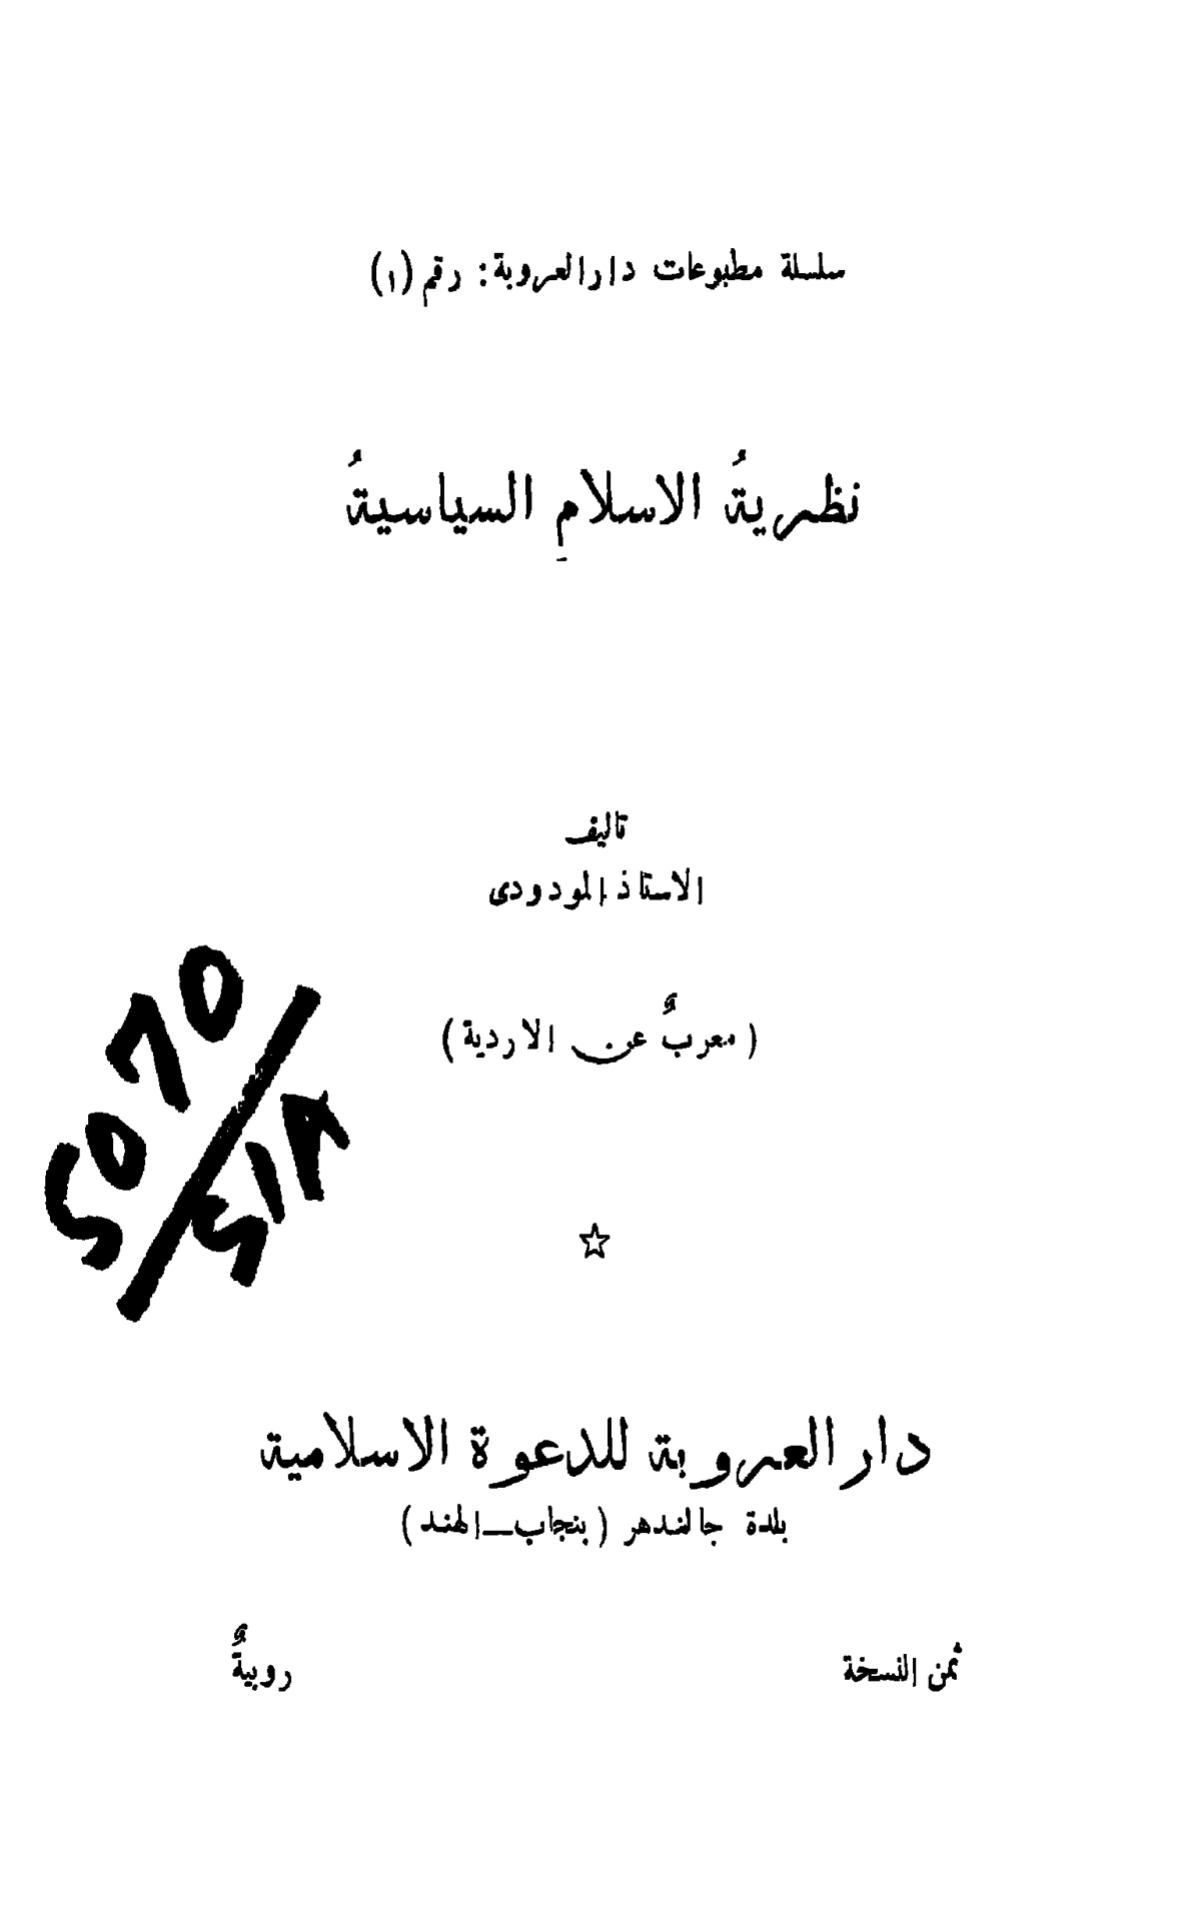 سلسلة مطبوعات دارالعروبة: رقم (۱)
نظريةُ الاسلامِ السياسيةُ
تاليف
الاستاذ المودودى
(معربٌ عن الاردية)
دارالعروبة للدعوة الاسلامية
بلدة جالندهر (بنجاب—الهند)
ثمن النسخة روبيةٌ